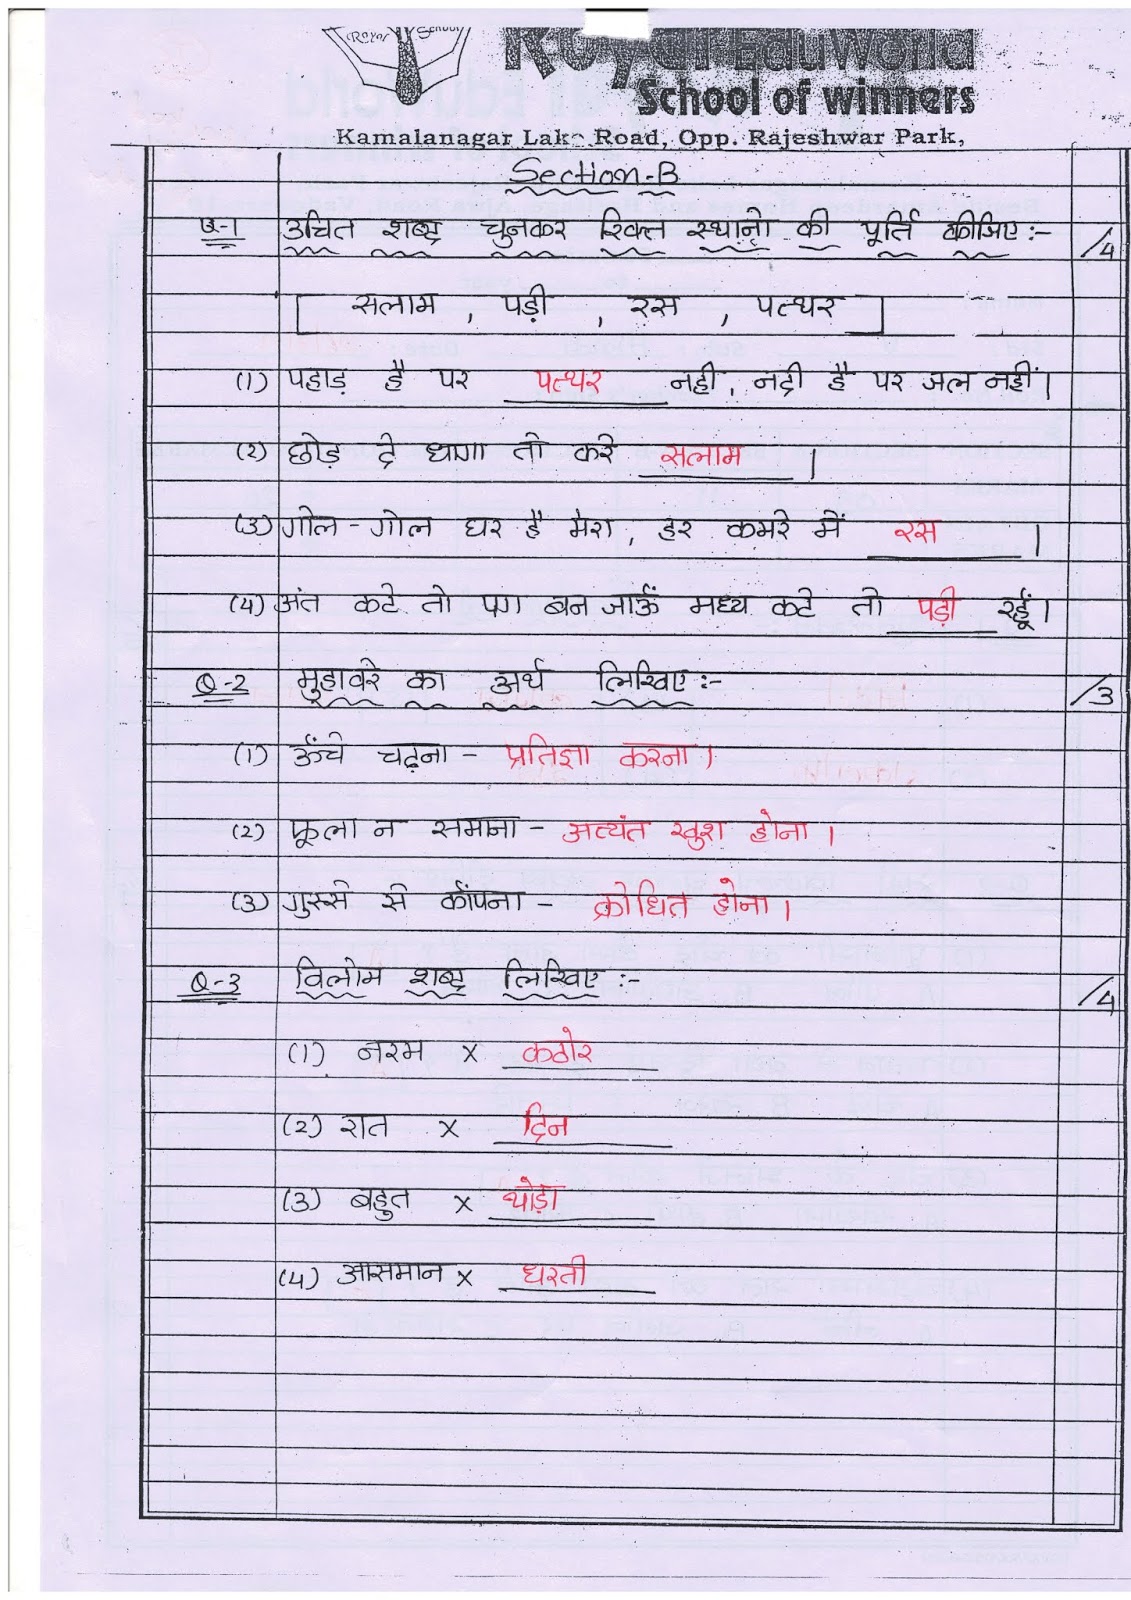 Royal School
Royal EduWorld
School of winners
Kamalanagar Lake Road, Opp. Rajeshwar Park,
Section-B
Q-1 उचित शब्द चुनकर रिक्त स्थानो की पूर्ति कीजिए:- /4
[ सलाम , पड़ी , रस , पत्थर ]
(1) पहाड़ है पर पत्थर नही, नदी है पर जल नहीं।
(२) छोड़ दे धागा तो करे सलाम ।
(3) गोल-गोल घर है मेरा, हर कमरे में रस ।
(4) अंत कटे तो पग बन जाऊँ मध्य कटे तो पड़ी रहूँ।
Q-2 मुहावरे का अर्थ लिखिए:- /3
(1) ऊँचे चढ़ना - प्रतिज्ञा करना।
(2) फूला न समाना - अत्यंत खुश होना।
(3) गुस्से से काँपना - क्रोधित होना।
Q-3 विलोम शब्द लिखिए:- /4
(1) नरम × कठोर
(2) रात × दिन
(3) बहुत × थोड़ा
(4) आसमान × धरती